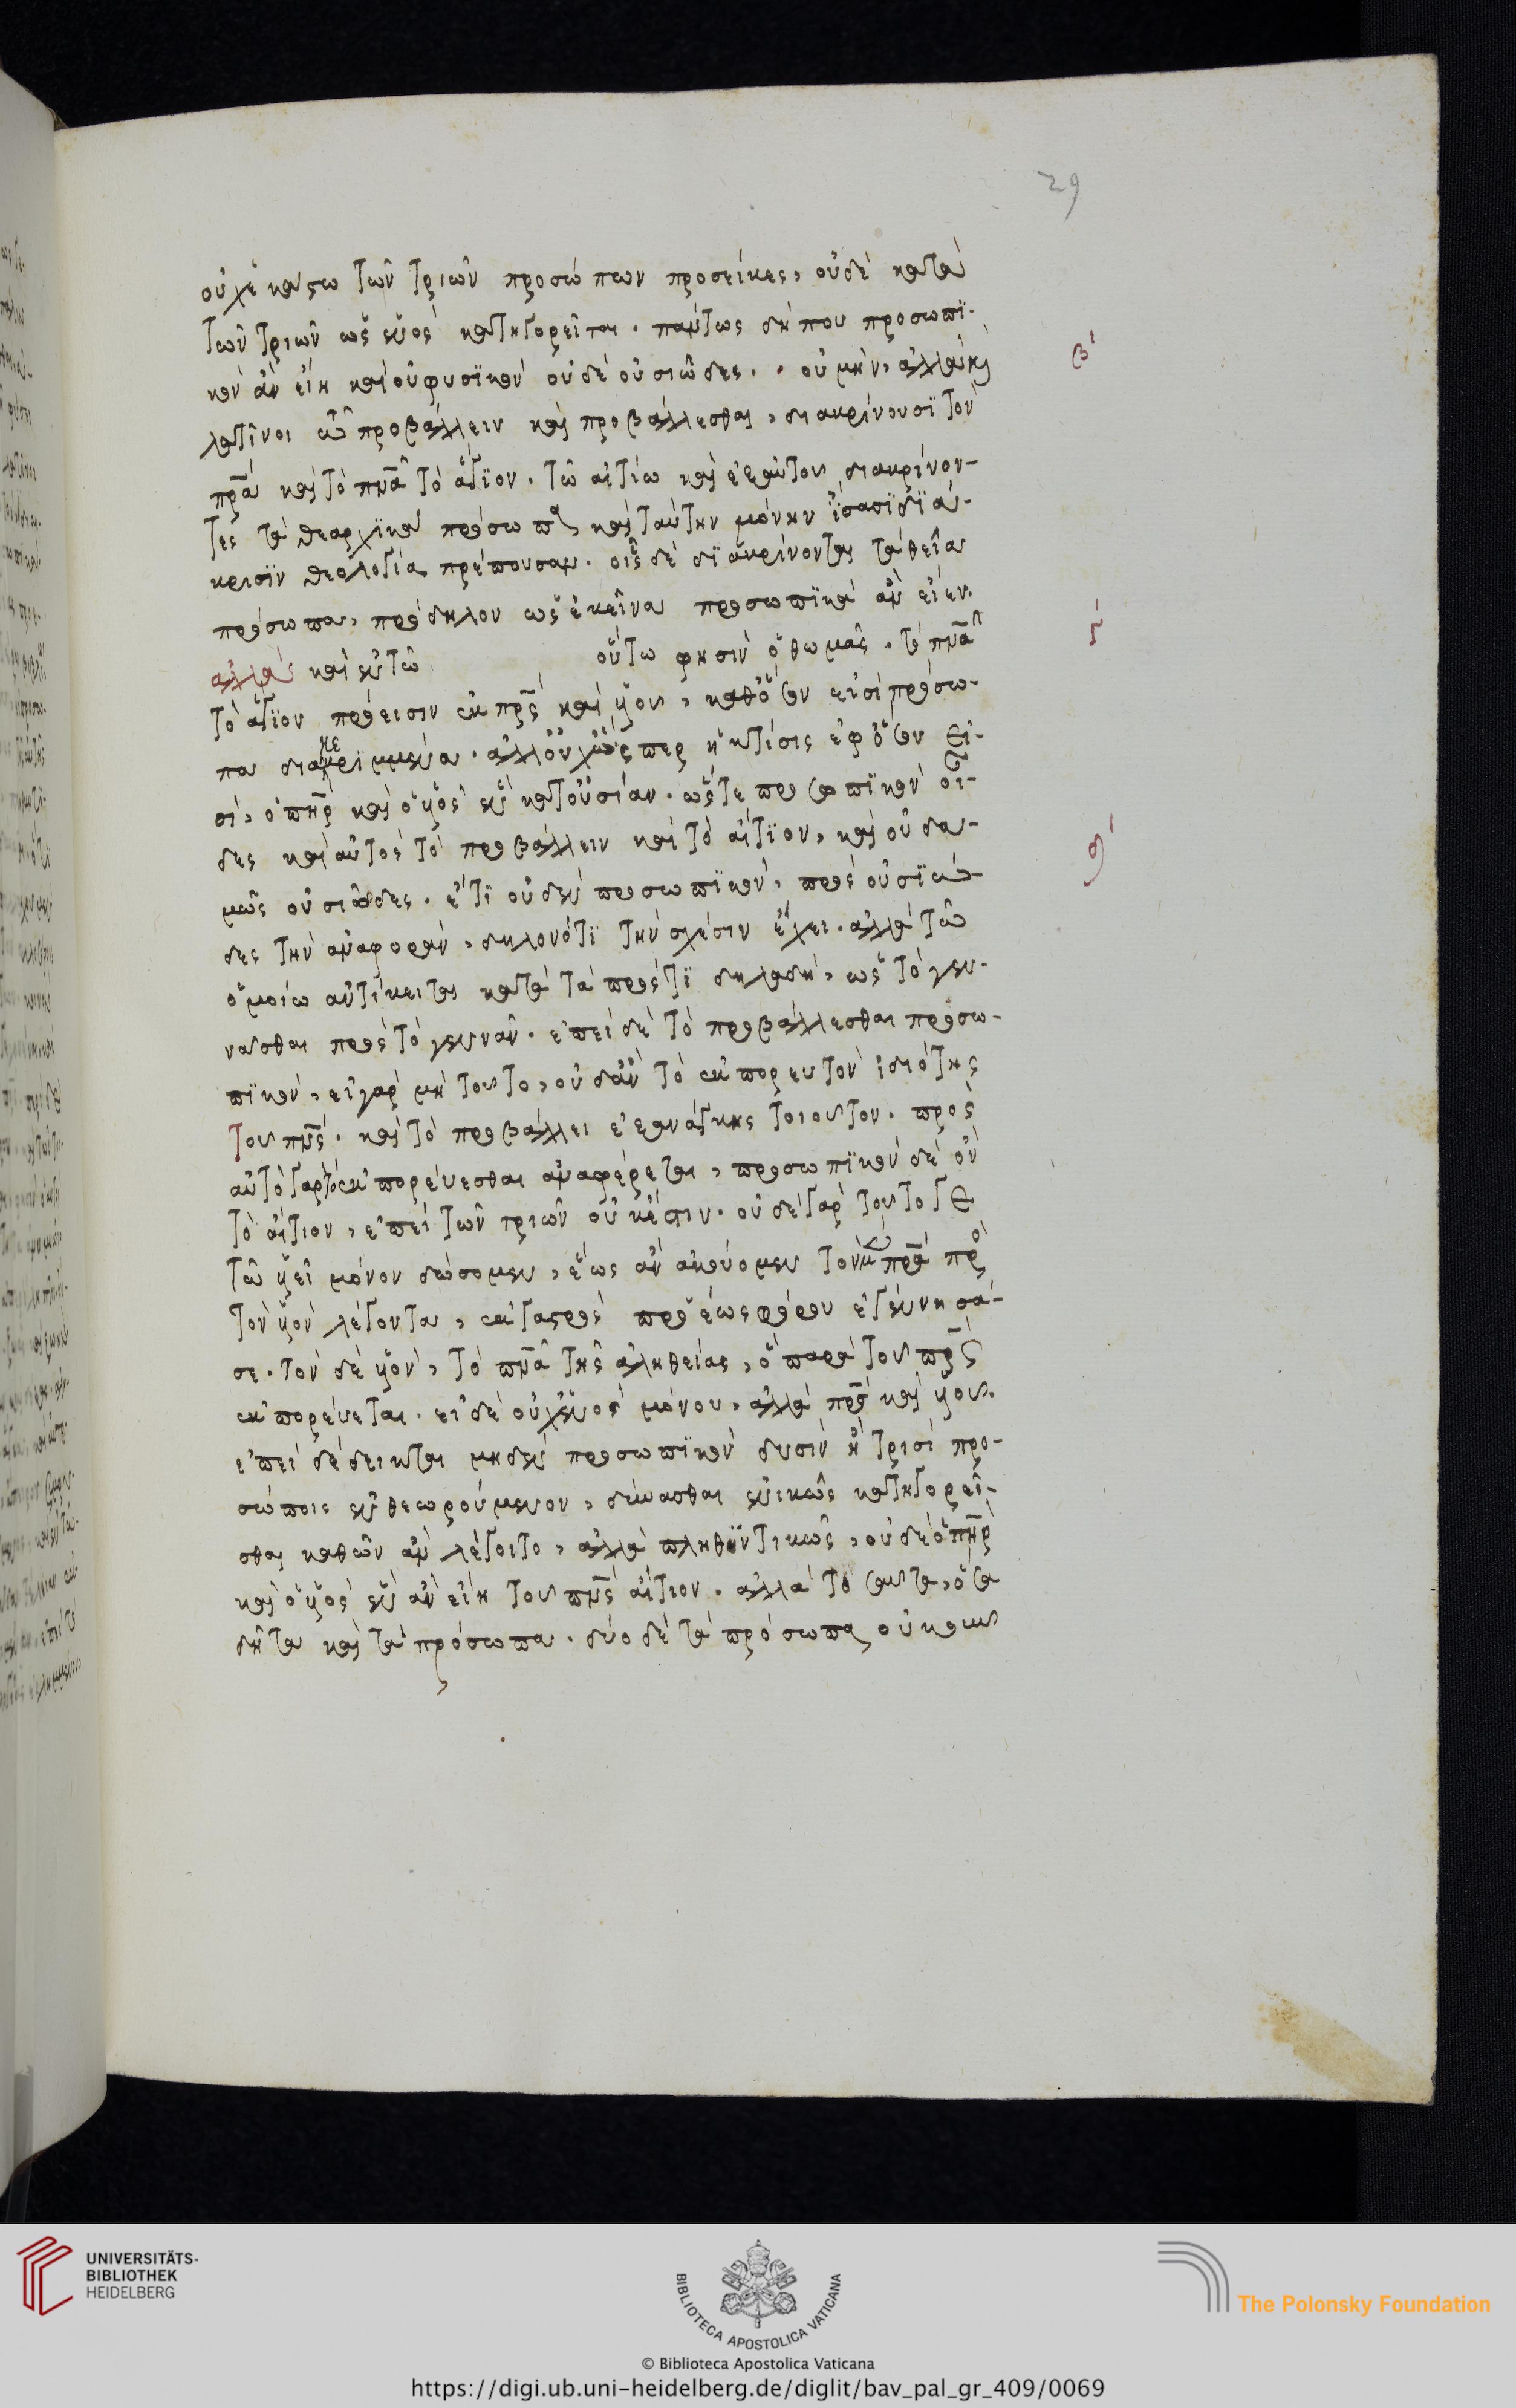 29
οὐχ ἑκάστω τῶν τριῶν προσώπων προσείκες, οὐδὲ κατὰ
τῶν τριῶν ὡς ἑνὸς κατηγορεῖται. πάντως δήπου προσωπϊ-
κὸν ἂν εἴη καὶ οὐ φυσϊκὸν οὐδὲ οὐσιῶδες. οὐ μὴν, ἀλλὰ καὶ
β´
λατῖνοι τῶ προβάλλειν καὶ προβάλλεσθαι, διακρίνουσϊ τὸν
πρα καὶ τὸ πνα τὸ ἅγϊον. τῶ αἰτίω καὶ διακρίνον-
τες τὰ θεαρχϊκὰ πρόσωπα, καὶ ταύτην μόνην ἴσασϊ δϊά-
κρισϊν θεολογία πρέπουσαν. οἷς δὲ δϊακρίνονται τὰ θεῖα
πρόσωπα, πρόδηλον ὡς ἐκεῖνα προσωπϊκὰ ἂν εἶεν.
ἀλλὰ καὶ ἐν τῶ οὕτω φησὶν ὁ θωμᾶς. τὸ πνα
γ´
τὸ ἅγϊον πρόεισιν ἐκ πρς καὶ υἱοῦ, καθόσον εἰσὶ πρόσω-
πα διακεκριμμένα. ἀλλ᾽ οὐχ ὥσπερ ἡ κτίσις ἐφ᾽ ὅσον εἰ-
σὶ, ὁ πηρ καὶ ὁ υἱὸς ἓν κατ᾽ οὐσίαν. ὥστε προσωπϊκὸν οἶ-
δες καὶ αὐτὸς τὸ προβάλλειν καὶ τὸ αἴτϊον, καὶ οὐδα-
δ´
μῶς οὐσιῶδες. ἔτϊ οὐδὲν προσωπϊκὸν, πρὸς οὐσϊῶ-
δες τὴν ἀναφορὰν, δηλονότϊ τὴν σχέσιν ἔχει. ἀλλὰ τῶ
ὁμοίω ἀντίκειται κατὰ τὰ πρός τϊ δηλαδὴ, ὡς τὸ γεν-
νᾶσθαι πρὸς τὸ γεννᾶν. ἐπεὶ δὲ τὸ προβάλλεσθαι προσω-
πϊκὸν, εἰ γὰρ μὴ τοῦτο, οὐδ᾽ ἂν τὸ ἐκπορευτὸν ἰδιότης
τοῦ πνς. καὶ τὸ προβάλλει ἐξανάγκης τοιοῦτον. πρὸς
αὐτὸ γὰρ τὸ ἐκπορεύεσθαι ἀναφέρεται, προσωπϊκὸν δὲ ὂν
τὸ αἴτιον, ἐπεὶ τῶν τριῶν οὐκ ἔστιν. οὐδὲ γὰρ τοῦτό γε
τῶ υἱεῖ μόνον δώσομεν, ἕως ἂν ἀκούομεν τὸν μὲν πρα πρὸς
τὸν υἱὸν λέγοντα, ἐκ γαστρὸς πρὸ ἑωσφόρου ἐγέννησά-
σε. τὸν δὲ υἱὸν, τὸ πνα τῆς ἀληθείας, ὃ παρὰ τοῦ πρς
ἐκπορεύεται. εἰ δὲ οὐχ ἑνὸς μόνου, ἀλλὰ πρς καὶ υἱοῦ.
ἐπεὶ δέδεικται μηδὲν προσωπϊκὸν δυσὶν ἢ τρισὶ προ-
σώποις ἐνθεωρούμενον, δύνασθαι ἑνικῶς κατηγορεῖ-
σθαι καθῶν ἂν λέγοιτο, ἀλλὰ πληθϋντικῶς, οὐδὲ ὁ πηρ
καὶ ὁ υἱὸς ἓν ἂν εἴη τοῦ πνς αἴτιον. ἀλλὰ τοσαῦτα, ὅσα
δῆτα καὶ τὰ πρόσωπα. δύο δὲ τὰ πρόσωπα, οὐκοῦν
UNIVERSITÄTS-
BIBLIOTHEK
HEIDELBERG
BIBLIOTECA APOSTOLICA VATICANA
The Polonsky Foundation
© Biblioteca Apostolica Vaticana
https://digi.ub.uni-heidelberg.de/diglit/bav_pal_gr_409/0069